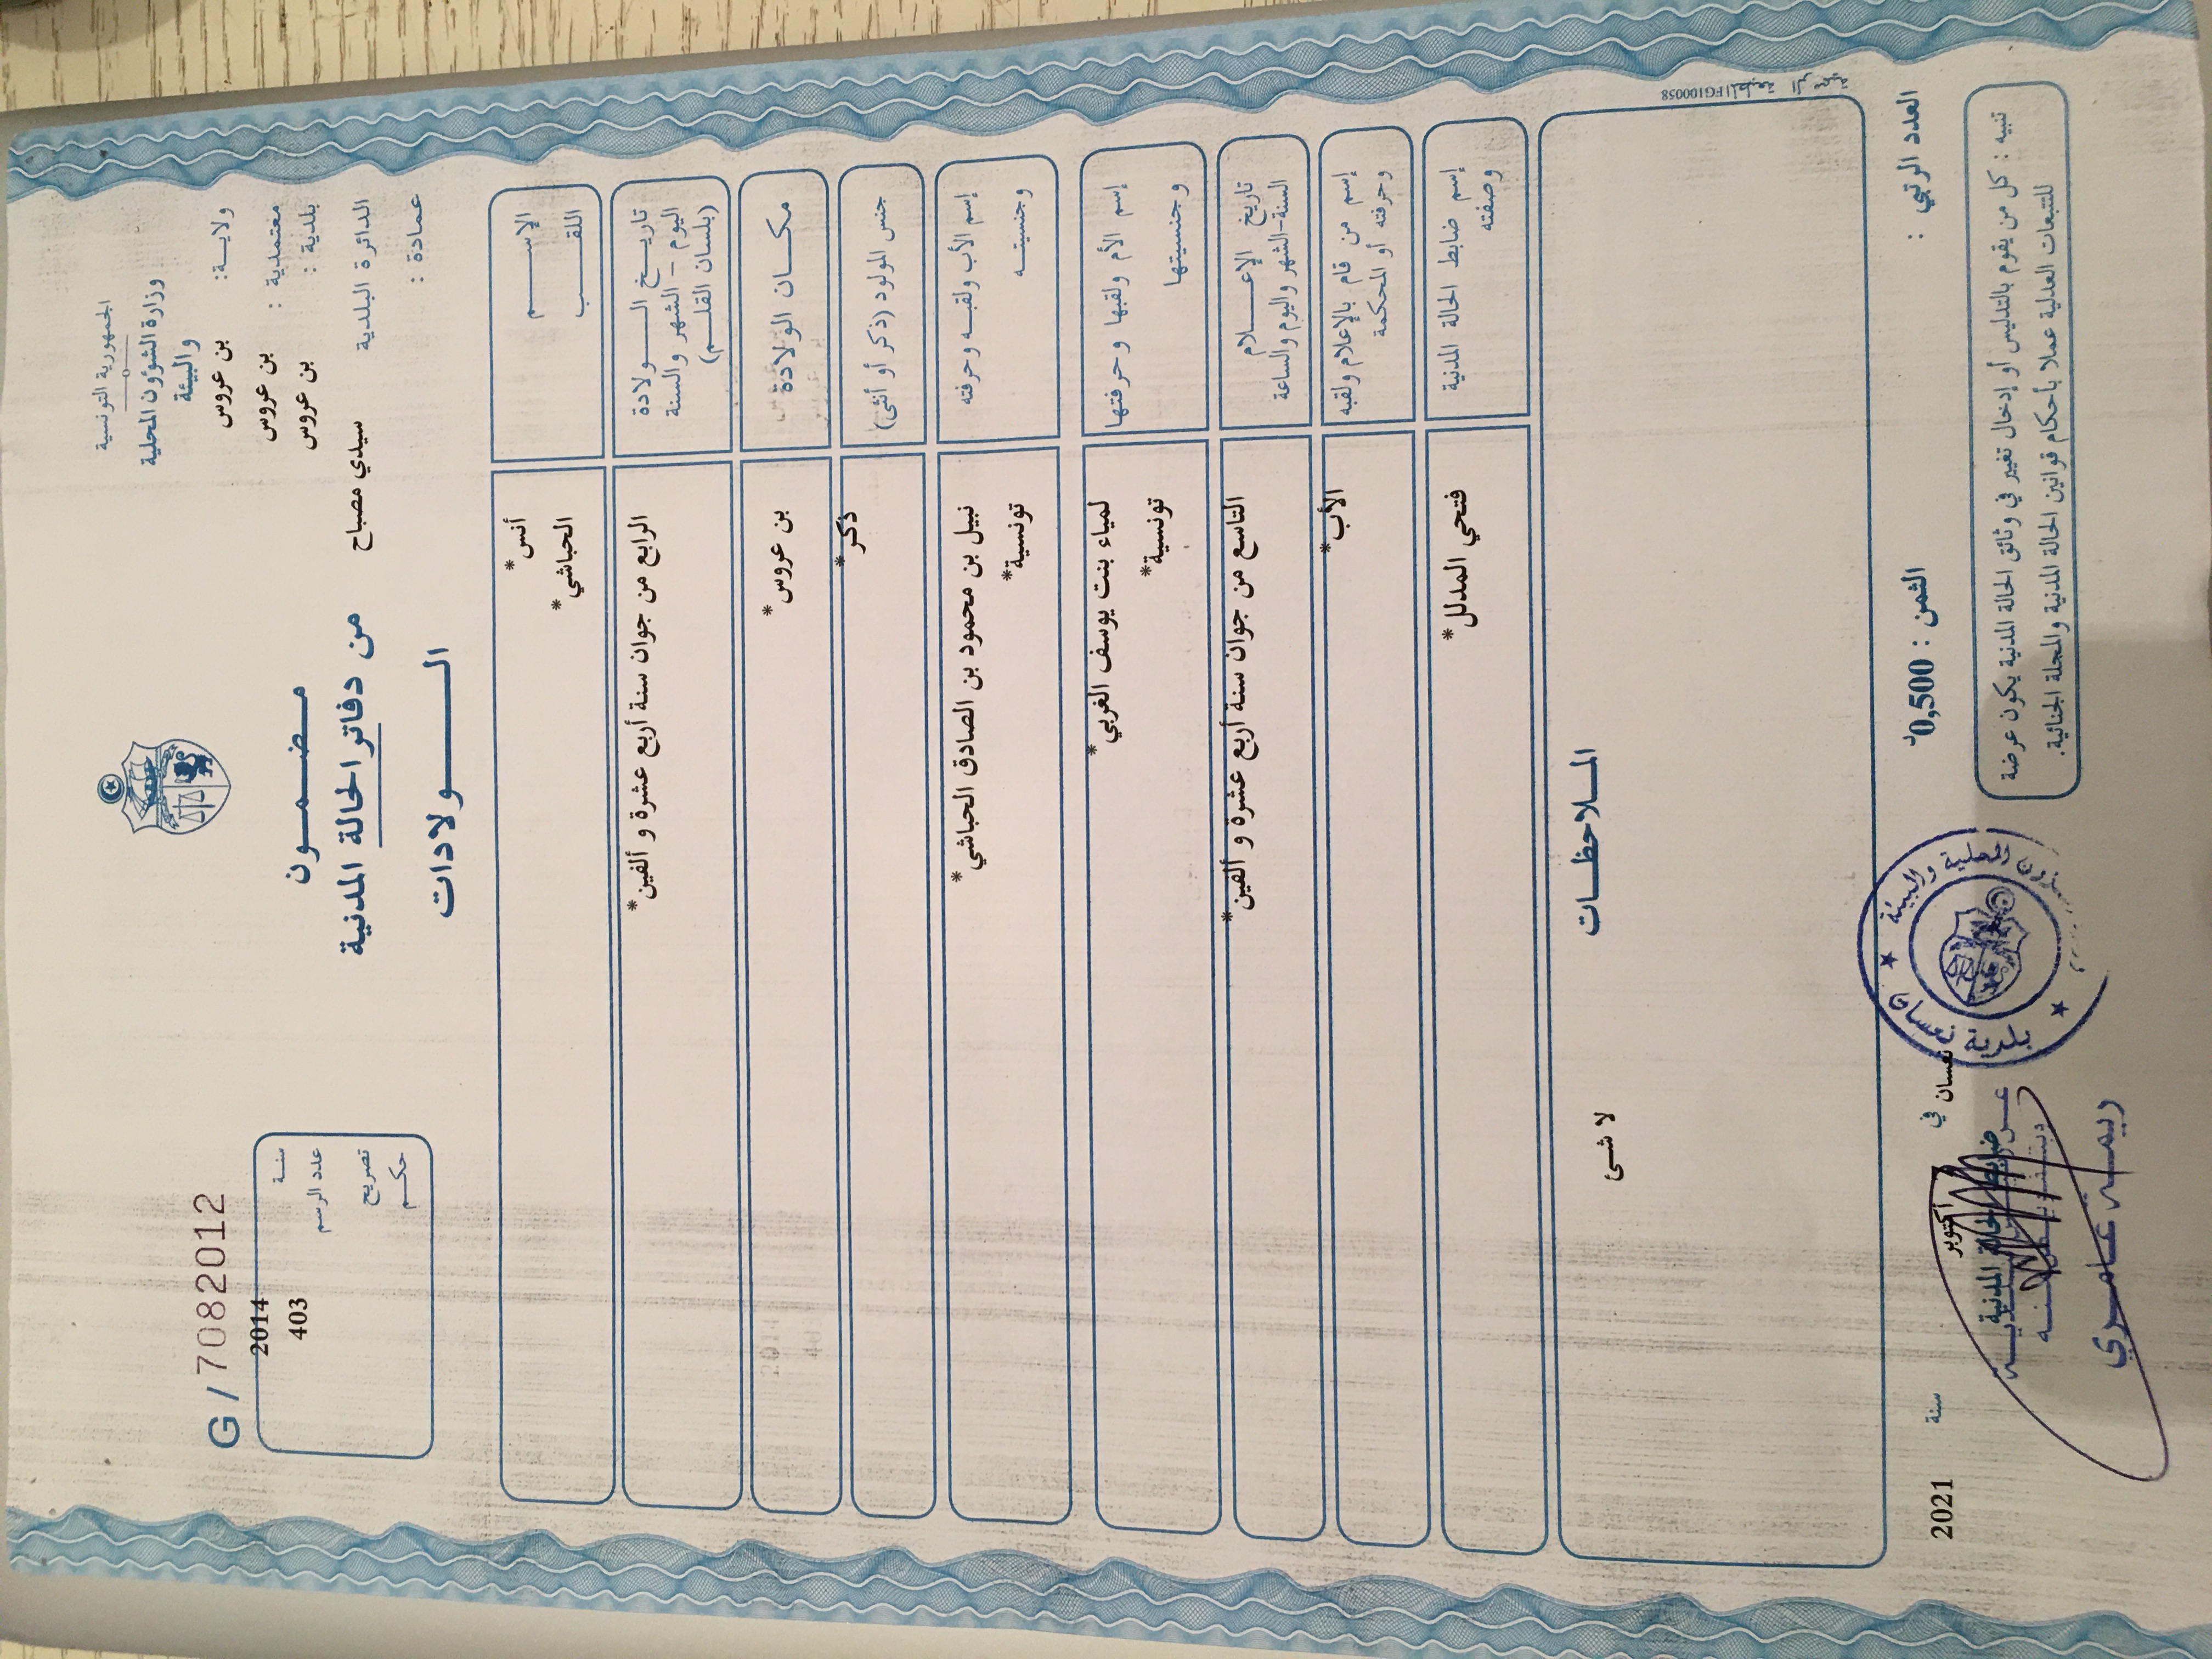 الجمهورية التونسية
وزارة الشؤون المحلية
والبيئة
ولايـة: بن عروس
معتمدية : بن عروس
بلدية : بن عروس
الدائرة البلدية سيدي مصباح
عمادة :
مـضـمـون
من دفاتر الحالة المدنية
الـولادات
G / 7082012
سنـة 2014
عدد الرسم 403
تصريح
حكـم
الإسـم أنس*
اللقـب الحباشي*
تاريـخ الـولادة الرابع من جوان سنة أربع عشرة و ألفين*
اليوم - الشهر والسنة
(بلسان القلـم)
مكـان الولادة بن عروس*
جنس المولود (ذكر أو أنثى) ذكر*
إسم الأب ولقبـه وحرفته نبيل بن محمود بن الصادق الحباشي*
وجنسيتـه تونسية*
إسم الأم ولقبها وحرفتها لمياء بنت يوسف الغربي*
وجنسيتها تونسية*
تاريخ الإعـلام التاسع من جوان سنة أربع عشرة و ألفين*
السنة-الشهر واليوم والساعة
إسم من قام بالإعلام ولقبه الأب*
وحرفته أو المحكمة
إسم ضابط الحالة المدنية فتحي المدلل*
وصفته
المـلاحظـات
لا شئ
FG100058
العدد الرتبي :
الثمن : 0,500د
نعسان في أكتوبر سنة 2021
ضابط الحالة المدنية
ريمـة عـامـري
المحلية والبيئة
بلدية نعسان
تنبيه : كل من يقوم بالتدليس أو إدخال تغيير في وثائق الحالة المدنية يكون عرضة
للتتبعات العدلية عملا بأحكام قوانين الحالة المدنية والمجلة الجنائية.